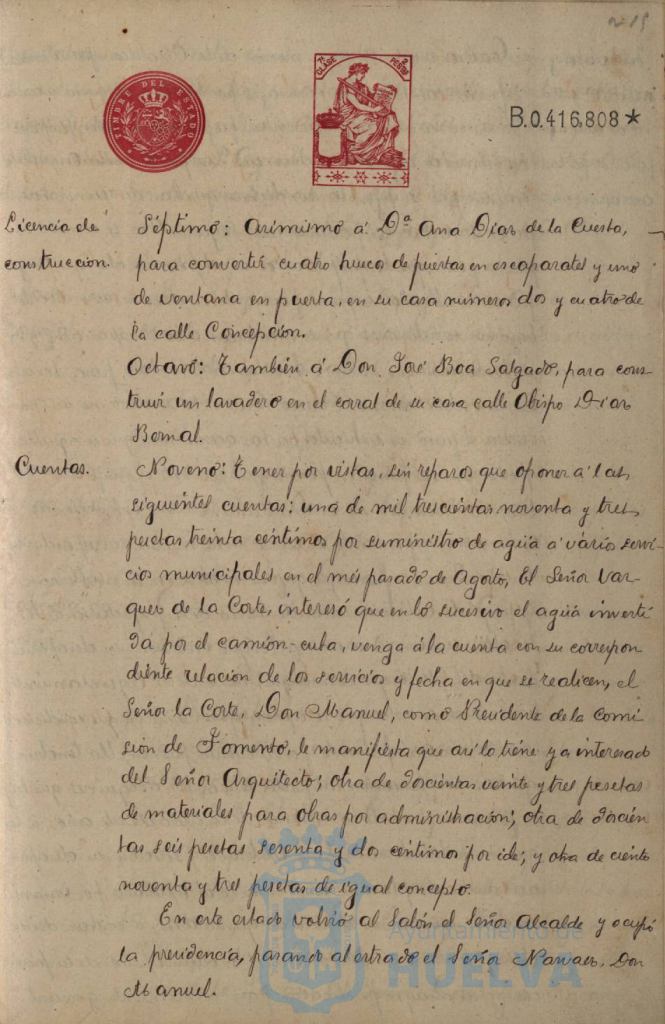 nº 15
TIMBRE DEL ESTADO
7ª CLASE 2 PESETAS
B.0.416.808*
Licencia de
construccion.
Séptimo: Asimismo á Dª Ana Dias de la Cuesta,
para convertir cuatro huecos de puertas en escaparates y uno
de ventana en puerta, en su casa números dos y cuatro de
la calle Concepción.
Octavo: También á Don José Boa Salgado, para cons-
truir un lavadero en el corral de su casa calle Obispo Dias
Bernal.
Cuentas.
Noveno: Tener por vistas, sin reparos que oponer á las
siguientes cuentas: una de mil trescientas noventa y tres
pesetas treinta céntimos por suministro de agua á varios servi-
cios municipales en el més pasado de Agosto, El Señor Vas
ques de la Corte, interesó que en lo sucesivo el agua inverti
da por el camión-cuba, venga á la cuenta con su correspon
diente relacion de los servicios y fecha en que se realicen, el
Señor la Corte, Don Manuel, como Presidente de la Comi
sion de Fomento, le manifiesta que asi lo tiene ya interesado
del Señor Arquitecto; otra de doscientas veinte y tres pesetas
de materiales para obras por administracion; otra de doscien
tas seis pesetas sesenta y dos centimos por ide; y otra de ciento
noventa y tres pesetas de igual concepto.
En este estado volvió al Salón el Señor Alcalde y ocupó
la presidencia, pasando al estrado el Señor Narvaes, Don
Manuel.
Ayuntamiento de
HUELVA